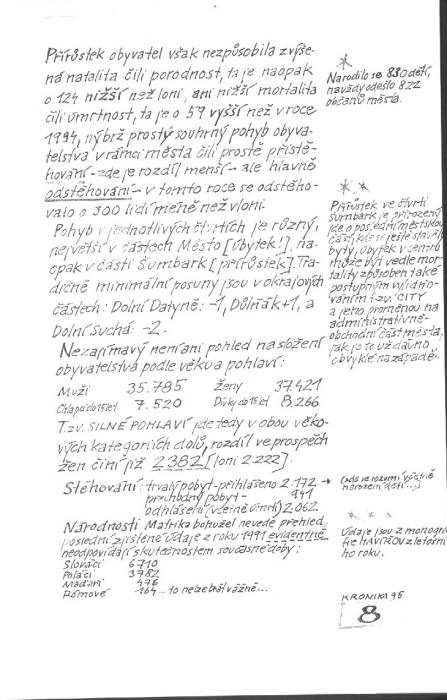 Přírůstek obyvatel však nezpůsobila zvýše-
ná natalita čili porodnost, ta je naopak
o 124 nižší než loni, ani nižší mortalita
čili úmrtnost, ta je o 59 vyšší než v roce
1994, nýbrž prostý souhrný pohyb obyva-
telstva v rámci města čili prostě přistě-
hování - zde je rozdíl menší - ale hlavně
odstěhování - v tomto roce se odstěho-
valo o 300 lidí méně než vloni.
Pohyb v jednotlivých čtvrtích je různý,
největší v částech Město [úbytek!], na-
opak v části Šumbark [přírůstek]. Tra-
dičně minimální posuny jsou v okrajových
částech: Dolní Datyně: -1, Důlňák +1, a
Dolní Suchá: -2.
Nezajímavý není ani pohled na složení
obyvatelstva podle věku a pohlaví:
Muži 35.785 Ženy 37.421
Chlapci do 15 let 7.520 Dívky do 15 let 8.266
T.zv. SILNÉ POHLAVÍ jde tedy v obou věko-
vých kategoriích dolů, rozdíl ve prospěch
žen činí již 2382 [loni 2.222].
Stěhování: trvalý pobyt - přihlášeno 2.172 →
přechodný pobyt - 941
odhlášení (včetně úmrtí) 2.062
Národnosti Matrika bohužel nevede přehled,
poslední zjištěné údaje z roku 1991 evidentně
neodpovídají skutečnostem současné doby:
Slováci 6710
Poláci 3782
Maďaři 476
Rómové 164 ... to nelze brát vážně...
*
Narodilo se 830 dětí,
navždy odešlo 822
občanů města.
* *
Přírůstek ve čtvrti
Šumbark je přirozený,
jde o poslední městskou
část, kde se ještě stavěly
byty, úbytek v centru
může být vedle mor-
tality způsoben také
postupným vylidňo-
váním t.zv. CITY
a jeho proměnou na
administrativně-
obchodní část města,
jak je to už dávno
obvyklé na západě.
(ada se rozumí včetně
narození dětí...)
* * *
Údaje jsou z monogra-
fie HAVÍŘOV z letošní-
ho roku.
KRONIKA 95
8